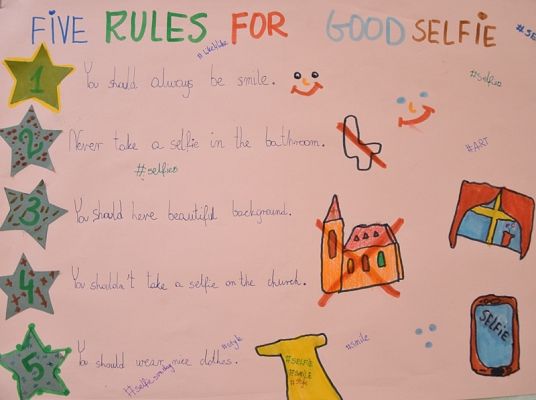 FiVE RULES FOR GOOD SELFiE
#LikeMike
#SE
1
You should always be smile.
#Selfieo
2
Never take a selfie in the bathroom.
#ART
#selfieo
3
You should here beautiful background.
4
You shouldn't take a selfie on the church.
SELFiE
5
You should wear nice clothes.
#style
#smile
#SELFIE
#SMILE